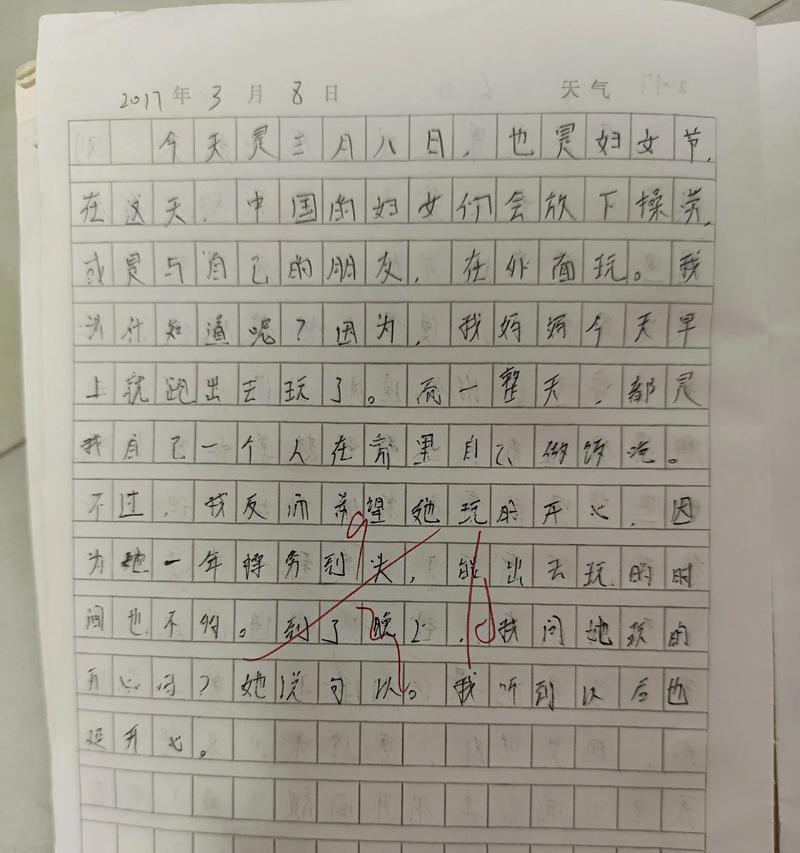 2017年3月8日 天气
今天是三月八日，也是妇女节，
在这天，中国的妇女们会放下操劳，
或是与自己的朋友，在外面玩。我
为什知道呢？因为，我妈妈今天早
上就跑出去玩了。而一整天，都是
我自己一个人在家里自己做饭吃。
不过，我反而希望她玩的开心，因
为她一年得劳到头，能出去玩的时
间也不多。到了晚上，我问她玩的
开心吗？她说可以。我听到以后也
挺开心。